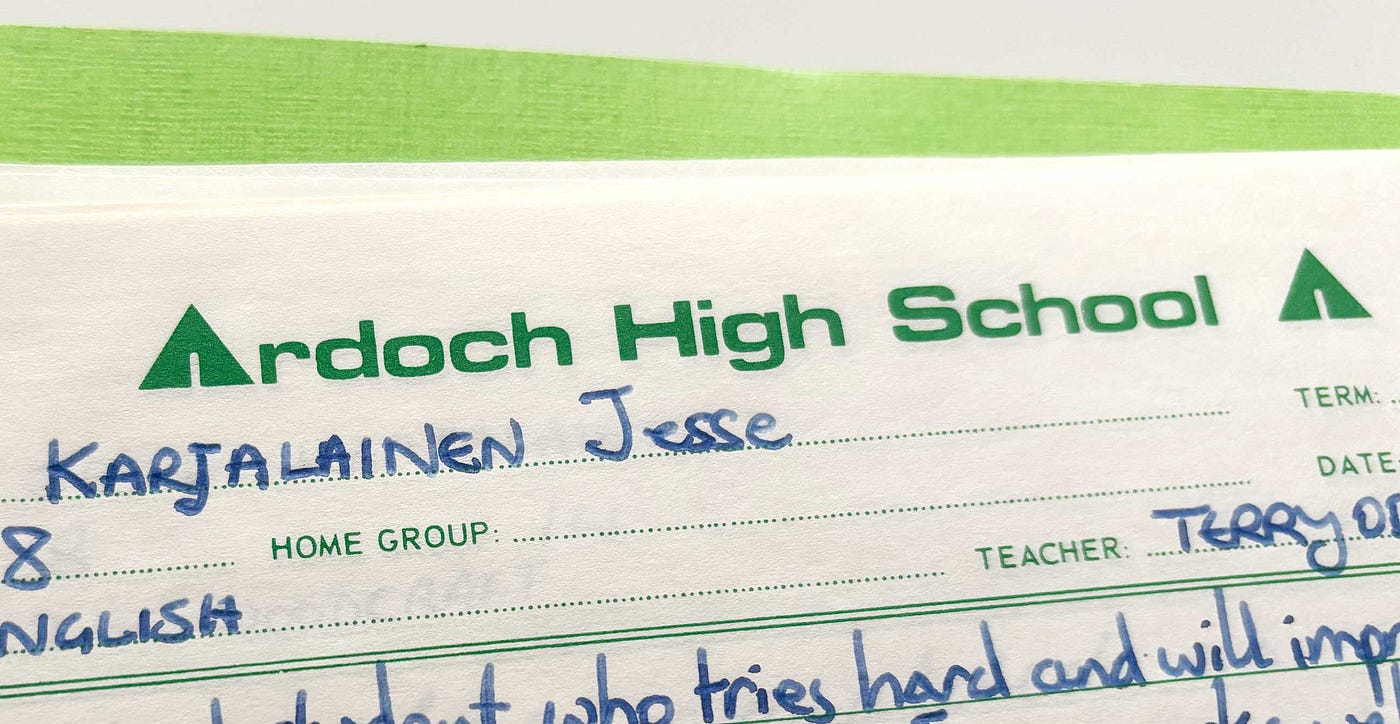 Ardoch High School
KARJALAINEN Jesse TERM:
8 HOME GROUP: DATE
NGLISH TEACHER: TERRY
student who tries hard and will